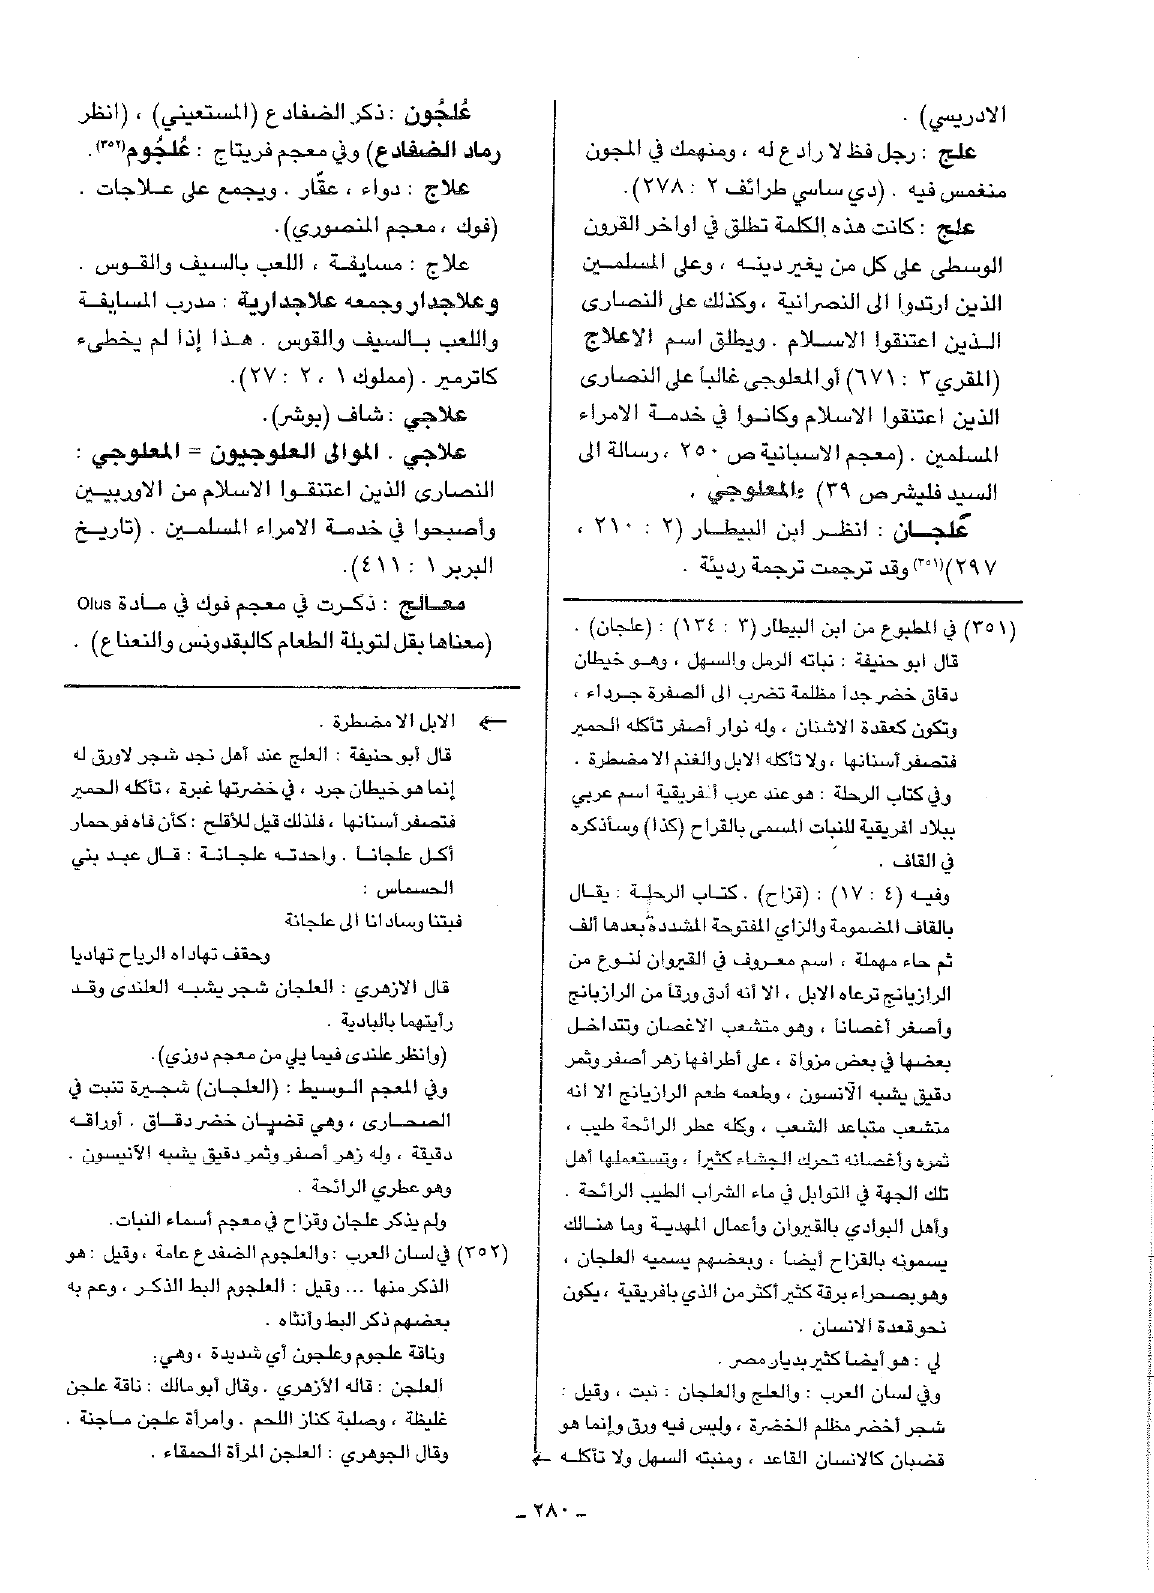 الادريسي) .
علج : رجل فظ لا رادع له ، ومنهمك في المجون
منغمس فيه . (دي ساسي طرائف ٢ : ٢٧٨).
علج : كانت هذه الكلمة تطلق في اواخر القرون
الوسطى على كل من يغير دينه ، وعلى المسلمين
الذين ارتدوا الى النصرانية ، وكذلك على النصارى
الذين اعتنقوا الاسلام . ويطلق اسم الاعلاج
(المقري ٣ : ٦٧١) أو المعلوجي غالباً على النصارى
الذين اعتنقوا الاسلام وكانوا في خدمة الامراء
المسلمين . (معجم الاسبانية ص ٢٥٠ ، رسالة الى
السيد فليشر ص ٣٩) والمعلوجي ،
عُلجان : انظر ابن البيطار (٢ : ٢١٠ ،
٢٩٧)(٣٥١) وقد ترجمت ترجمة رديئة .
(٣٥١) في المطبوع من ابن البيطار (٣ : ١٣٤) : (علجان) .
قال ابو حنيفة : نباته الرمل والسهل ، وهو خيطان
دقاق خضر جداً مظلمة تضرب الى الصفرة جرداء ،
وتكون كعقدة الاشنان ، وله نوار أصفر تأكله الحمير
فتصفر أسنانها ، ولا تأكله الابل والغنم الا مضطرة .
وفي كتاب الرحلة : هو عند عرب أفريقية اسم عربي
ببلاد افريقية للنبات المسمى بالقراح (كذا) وسأذكره
في القاف .
وفيه (٤ : ١٧) : (قزاح) . كتاب الرحلة : يقال
بالقاف المضمومة والزاي المفتوحة المشددة بعدها ألف
ثم حاء مهملة ، اسم معروف في القيروان لنوع من
الرازيانج ترعاه الابل ، الا أنه أدق ورقاً من الرازيانج
وأصفر أغصاناً ، وهو متشعب الاغصان وتتداخل
بعضها في بعض مزواة ، على أطرافها زهر أصفر وثمر
دقيق يشبه الآنسون ، وطعمه طعم الرازيانج الا انه
متشعب متباعد الشعب ، وكله عطر الرائحة طيب ،
ثمره وأغصانه تحرك الجشاء كثيراً ، وتستعملها أهل
تلك الجهة في التوابل في ماء الشراب الطيب الرائحة .
وأهل البوادي بالقيروان وأعمال المهدية وما هنالك
يسمونه بالقزاح أيضاً ، وبعضهم يسميه العلجان ،
وهو بصحراء برقة كثير أكثر من الذي بافريقية ، يكون
نحو قعدة الانسان .
لي : هو أيضاً كثير بديار مصر .
وفي لسان العرب : والعلج والعلجان : نبت ، وقيل :
شجر أخضر مظلم الخضرة ، وليس فيه ورق وإنما هو
قضبان كالانسان القاعد ، ومنبته السهل ولا تأكله ←
عُلجُون : ذكر الضفادع (المستعيني) ، (انظر
رماد الضفادع) وفي معجم فريتاج : عُلجُوم(٣٥٢).
علاج : دواء ، عقّار . ويجمع على علاجات .
(فوك ، معجم المنصوري).
علاج : مسايفة ، اللعب بالسيف والقوس .
وعلاجدار وجمعه علاجدارية : مدرب المسايفة
واللعب بالسيف والقوس . هذا إذا لم يخطىء
كاترمير . (مملوك ١ ، ٢ : ٢٧).
علاجي : شاف (بوشر).
علاجي . الموالى العلوجيون = المعلوجي :
النصارى الذين اعتنقوا الاسلام من الاوربيين
وأصبحوا في خدمة الامراء المسلمين . (تاريخ
البربر ١ : ٤١١).
معالج : ذكرت في معجم فوك في مادة Olus
(معناها بقل لتوبلة الطعام كالبقدونس والنعناع) .
← الابل الا مضطرة .
قال أبو حنيفة : العلج عند أهل نجد شجر لا ورق له
إنما هو خيطان جرد ، في خضرتها غبرة ، تأكله الحمير
فتصفر أسنانها ، فلذلك قيل للأقلح : كأن فاه فو حمار
أكل علجاناً . واحدته علجانة : قال عبد بني
الحسماس :
فبتنا وسادانا الى علجانة
وحقف تهاداه الرياح تهاديا
قال الازهري : العلجان شجر يشبه العلندى وقد
رأيتهما بالبادية .
(وانظر علندى فيما يلي من معجم دوزي).
وفي المعجم الوسيط : (العلجان) شجيرة تنبت في
الصحارى ، وهي قضبان خضر دقاق . أوراقه
دقيقة ، وله زهر أصفر وثمر دقيق يشبه الآنيسون .
وهو عطري الرائحة .
ولم يذكر علجان وقزاح في معجم أسماء النبات.
(٣٥٢) في لسان العرب : والعلجوم الضفدع عامة ، وقيل : هو
الذكر منها ... وقيل : العلجوم البط الذكر ، وعم به
بعضهم ذكر البط وأنثاه .
وناقة علجوم وعلجون أي شديدة ، وهي:
العلجن : قاله الأزهري . وقال أبو مالك : ناقة علجن
غليظة ، وصلبة كناز اللحم . وامرأة علجن ماجنة .
وقال الجوهري : العلجن المرأة الحمقاء .
ـ ٢٨٠ ـ